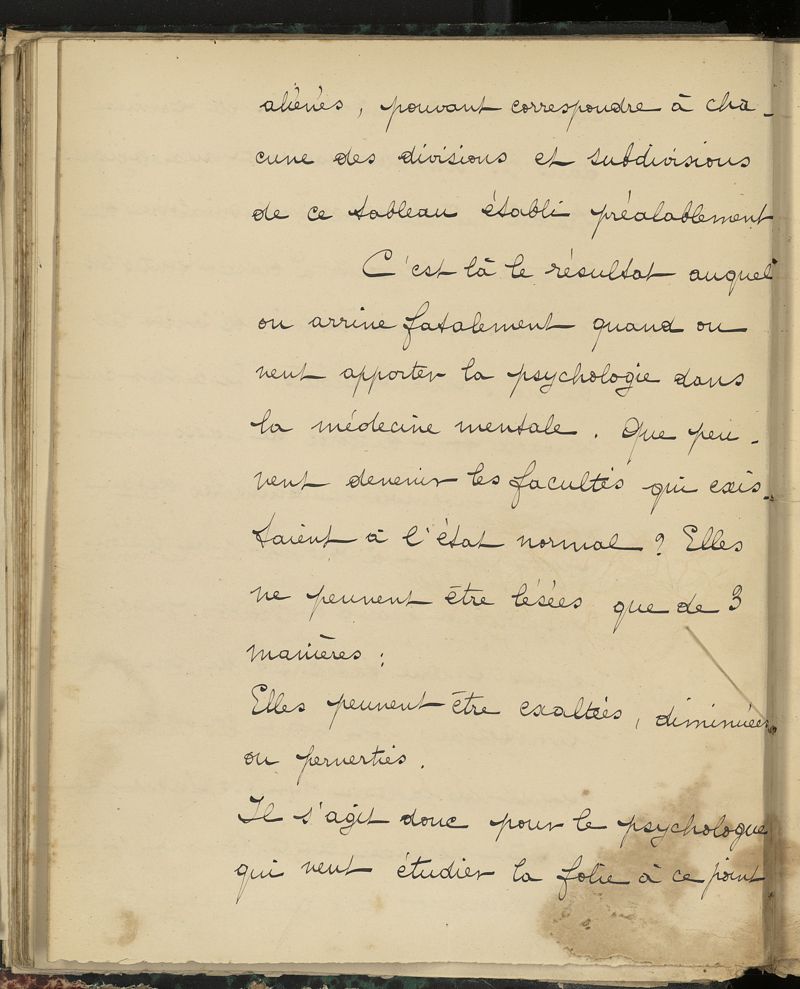 aliénés, pouvant correspondre à cha-
cune des divisions et subdivisions
de ce tableau établi préalablement
C'est là le résultat auquel
on arrive fatalement quand on
veut apporter la psychologie dans
la médecine mentale. Que peu-
vent devenir les facultés qui exis-
taient à l'état normal ? Elles
ne peuvent être lésées que de 3
manières :
Elles peuvent être exaltées, diminuées
ou perverties.
Il s'agit donc pour le psychologue
qui veut étudier la folie à ce point